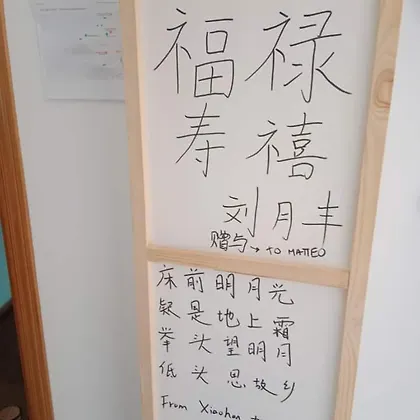 福禄
寿禧
刘月丰
赠与→ TO MATTEO
床前明月光
疑是地上霜
举头望明月
低头思故乡
From Xiaohan